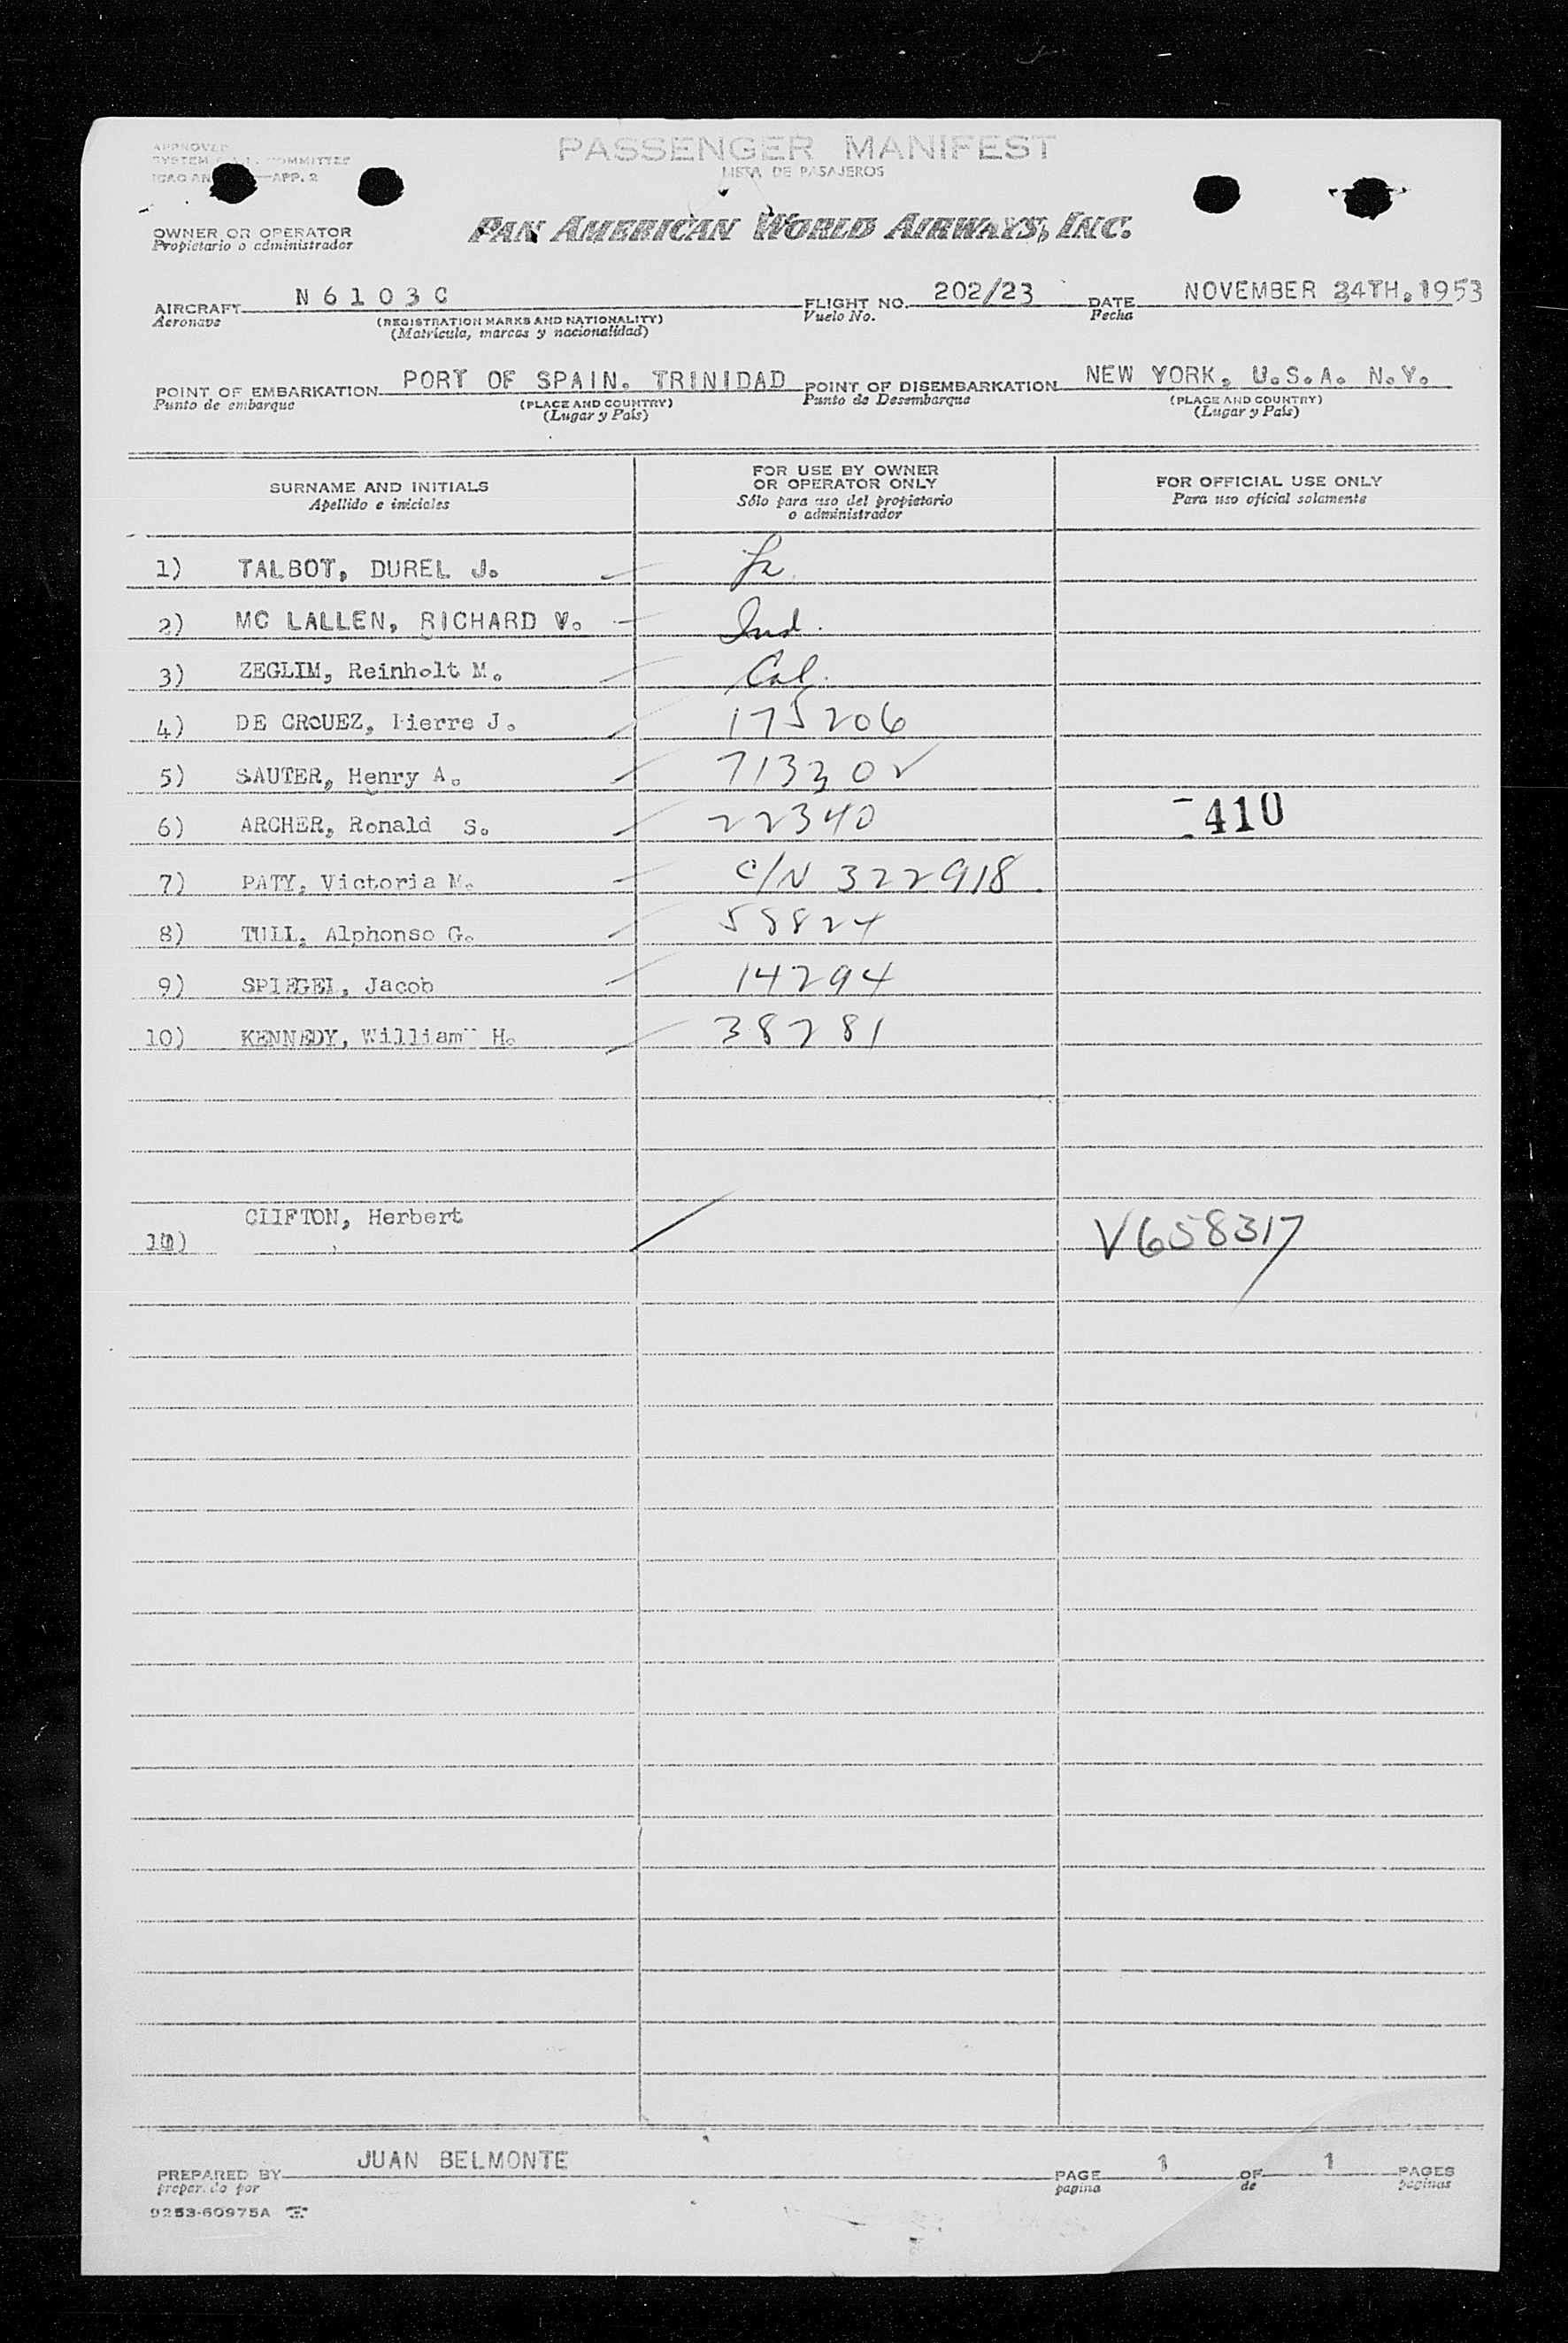 PASSENGER MANIFEST
LISTA DE PASAJEROS
APPROVED
SYSTEM COMMITTEE
ICAO AN —APP. 2
OWNER OR OPERATOR
Propietario o administrador
PAN AMERICAN WORLD AIRWAYS, INC.
AIRCRAFT N6103C FLIGHT NO. 202/23 DATE NOVEMBER 24TH, 1953
Aeronave (REGISTRATION MARKS AND NATIONALITY) Vuelo No. Fecha
(Matrícula, marcas y nacionalidad)
POINT OF EMBARKATION PORT OF SPAIN. TRINIDAD POINT OF DISEMBARKATION NEW YORK, U.S.A. N.Y.
Punto de embarque (PLACE AND COUNTRY) Punto de Desembarque (PLACE AND COUNTRY)
(Lugar y País) (Lugar y País)
SURNAME AND INITIALS FOR USE BY OWNER OR OPERATOR ONLY FOR OFFICIAL USE ONLY
Apellido e iniciales Sólo para uso del propietario o administrador Para uso oficial solamente
1) TALBOT, DUREL J.
2) MC LALLEN, RICHARD V. Ind.
3) ZEGLIM, Reinholt M. Cal.
4) DE CROUEZ, Pierre J. 175206
5) SAUTER, Henry A. 713302
6) ARCHER, Ronald S. 22340 410
7) PATY, Victoria M. C/N 322918
8) TULL, Alphonso G. 58824
9) SPIEGEL, Jacob 14294
10) KENNEDY, William H. 38281
CLIFTON, Herbert
11) V658317
PREPARED BY JUAN BELMONTE PAGE 1 OF 1 PAGES
preparado por pagina de paginas
9253-60975A